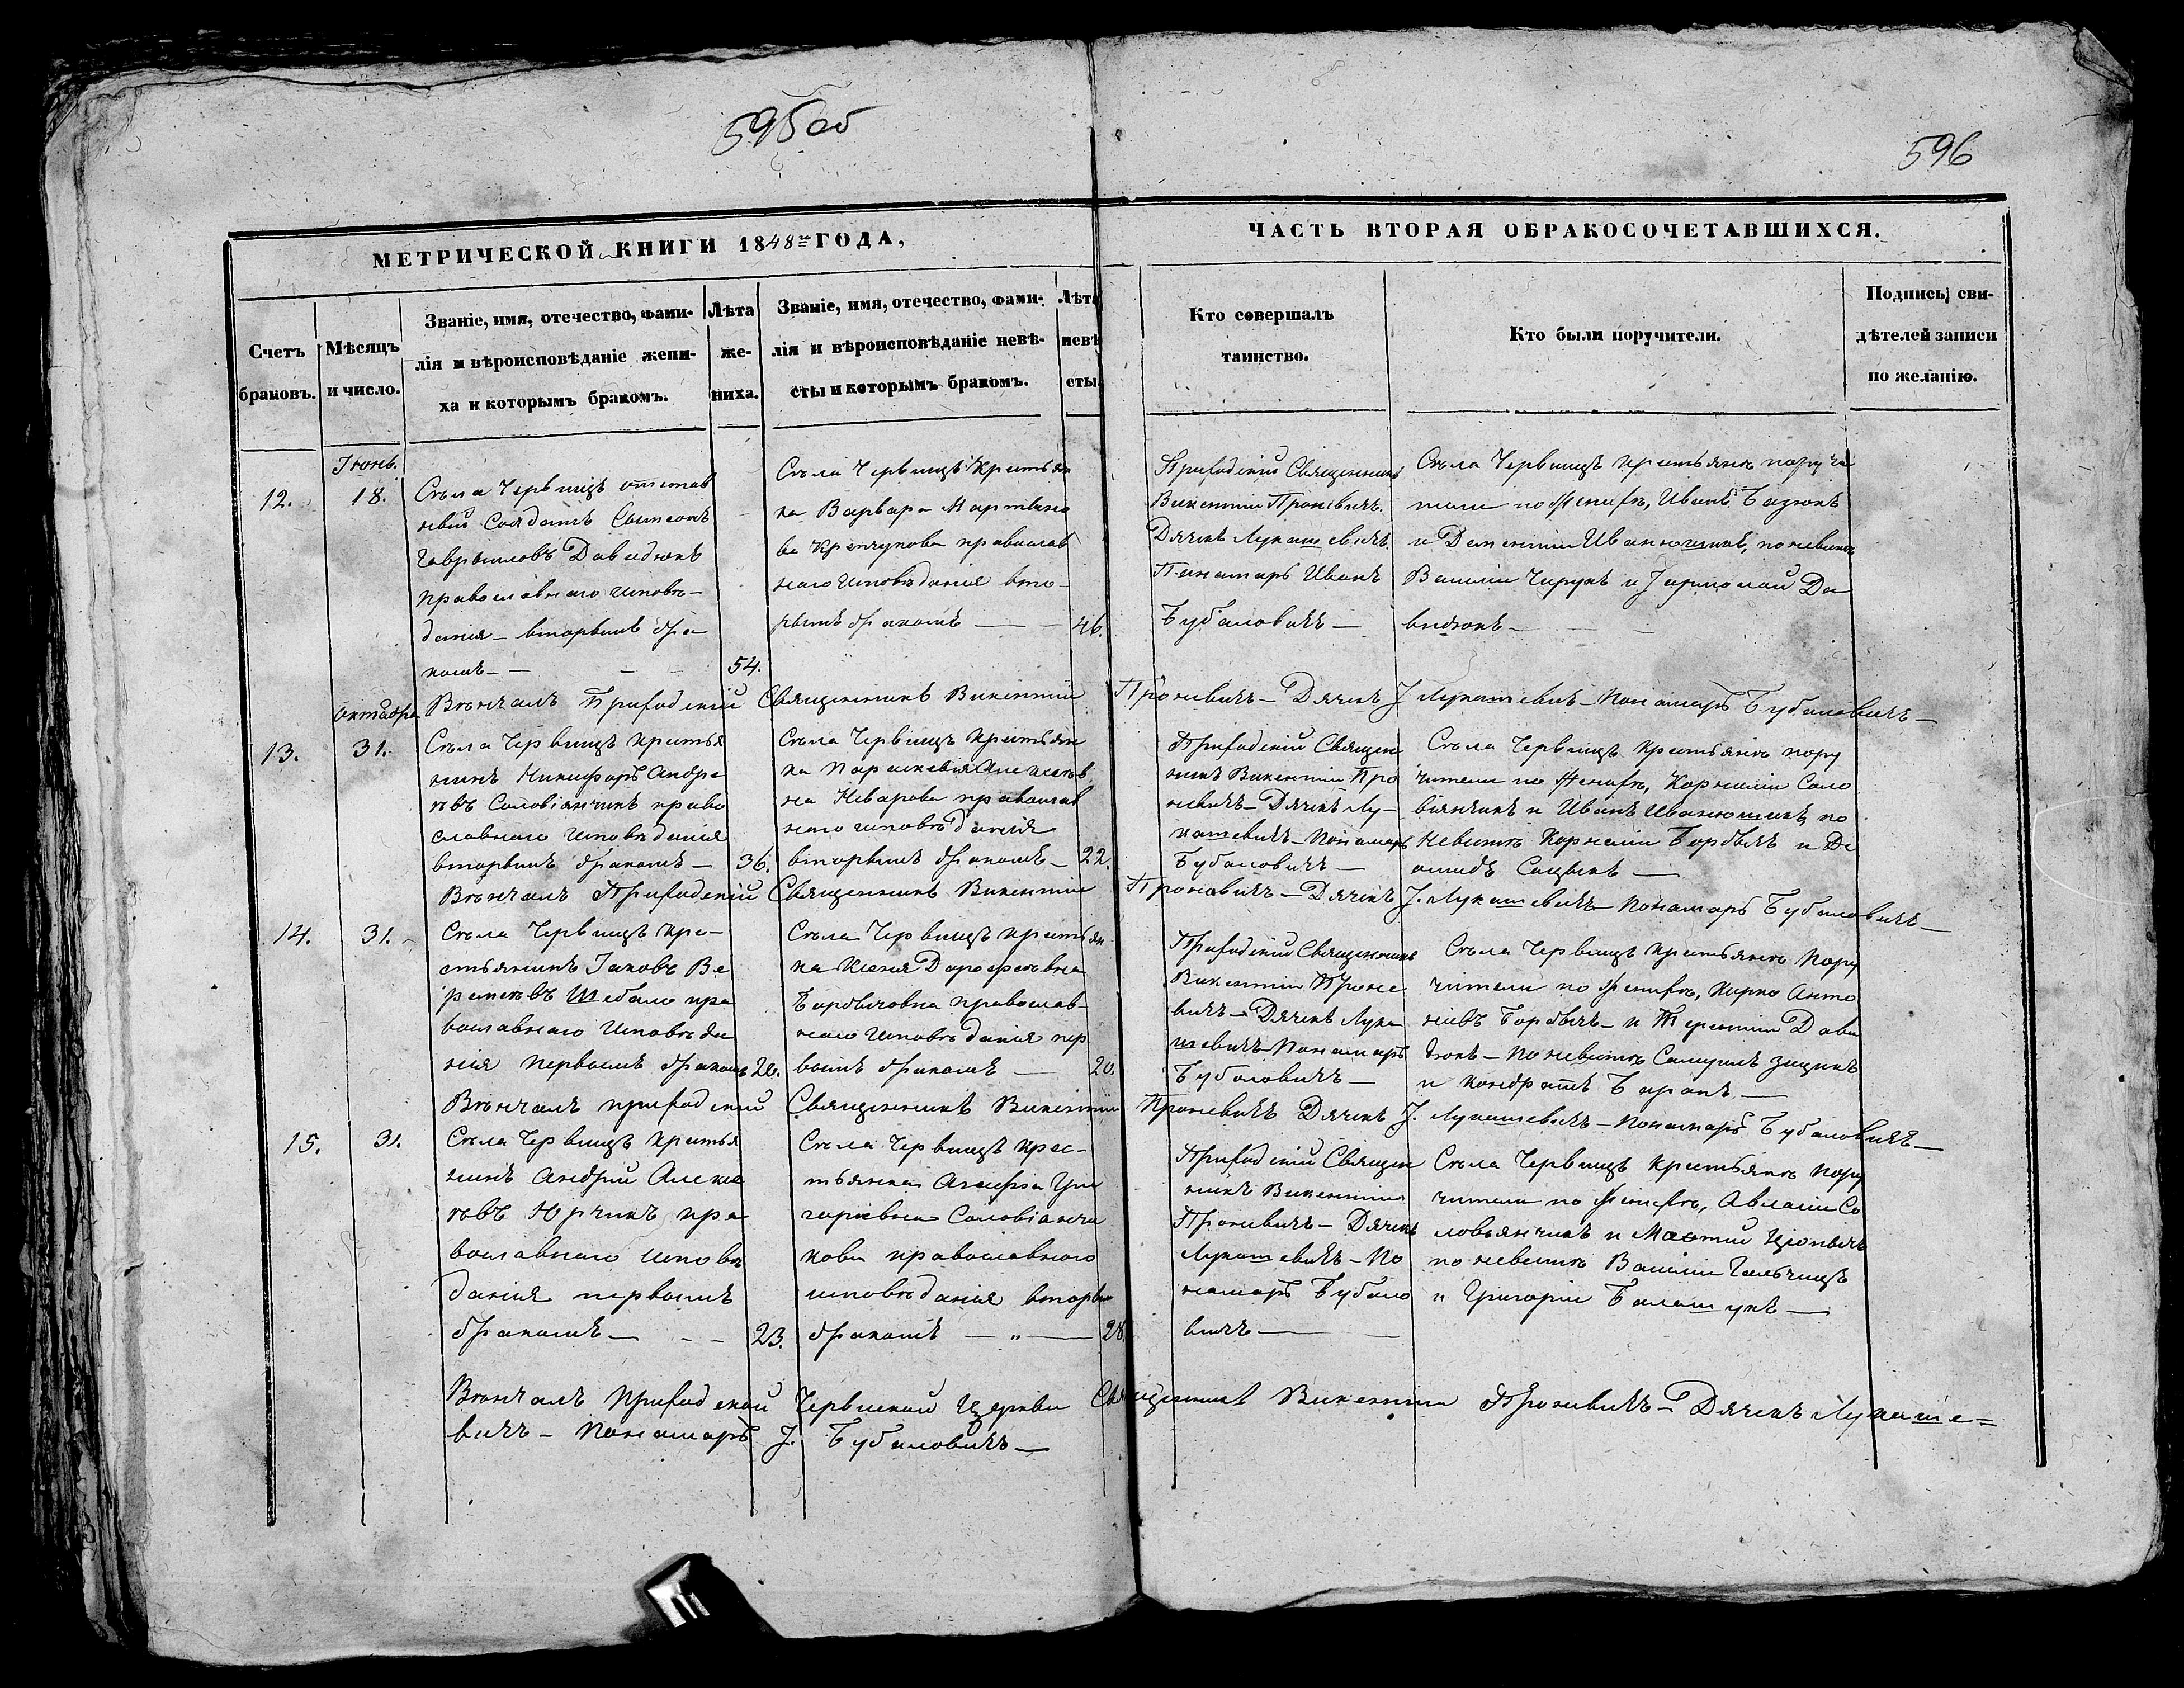 595об
596
МЕТРИЧЕСКОЙ КНИГИ 1848го ГОДА,
ЧАСТЬ ВТОРАЯ ОБРАКОСОЧЕТАВШИХСЯ.
Счетъ
браковъ.
Мѣсяцъ
и число.
Званіе, имя, отечество, фами-
лія и вѣроисповѣданіе жени-
ха и которымъ бракомъ.
Лѣта
же-
ниха.
Званіе, имя, отечество, фами-
лія и вѣроисповѣданіе невѣ-
сты и которымъ бракомъ.
Лѣта
невѣ
сты.
Кто совершалъ
таинство.
Кто были поручители.
Подпись сви-
дѣтелей записи
по желанію.
12.
Іюнь.
18.
Съла Червищъ отстав
ный Солдатъ Сымеонъ
Гавриловъ Давидюкъ
православнаго исповѣ-
данія – вторымъ бра
комъ –
54.
Съла Червищъ Крестьян
ка Варвара Мартыно
ва православ
наго исповѣданія вто-
рымъ бракомъ —
46.
Приходскій Священникъ
Викентій Проневичъ.
Дячекъ Лукашевичъ.
Панамарь Иванъ
Бубаловичъ —
Съла Червищъ крестьяне поручи
тели по женихѣ, Иванъ Базюкъ
и Дементій Иванюшикъ, по невѣстѣ
Василій Чирукъ и Јармолай Да
видюкъ –
Вѣнчалъ Приходскій Священникъ Викентій Проневичъ – Дячекъ J Лукашевичъ – Понамарь Бубаловичъ –
13.
октября
31.
Съла Червищъ крестья
нинъ Никифоръ Андре
ѣвъ Соловіянчикъ право
славнаго исповѣданія
вторымъ бракомъ —
36.
Съла Червищъ Крестьян
ка Параскевія Алексѣев
на православ
наго исповѣданія
вторымъ бракомъ —
22.
Приходскій Священ
никъ Викентій Про
невичъ – Дячекъ Лу-
кашевичъ – Понамарь
Бубаловичъ —
Съла Червищъ Крестьяне пору
чители по женихѣ, Корнилій Соло
віянчикъ и Иванъ Иванюшикъ, по
невѣстѣ Корнилій Борбычъ и Де
мидъ Сацыкъ —
Вѣнчалъ Приходскій Священникъ Викентій Проневичъ – Дячекъ J. Лукашевичъ – Понамарь Бубаловичъ –
14.
31.
Съла Червищъ Кре-
стьянинъ Іаковъ Ве
ремѣевъ Шебало пра
вославнаго Исповѣда
нія первымъ бракомъ
20.
Съла Червищъ крестьян
ка Ксенія Дорофеѣвна
Борбычовна православ-
наго исповѣданія пер
вымъ бракомъ —
20.
Приходскій Священникъ
Викентій Проне
вичъ – Дячекъ Лука
шевичъ Понамарь
Бубаловичъ —
Съла Червищъ крестьяне пору
чители по женихѣ, Карпо Анто
ніевъ Борбычъ – и Терентій Дави
дюкъ – по невѣстѣ Самуилъ Зицикъ
и Кондратъ Биранъ —
Вѣнчалъ приходскій Священникъ Викентій Проневичъ Дячекъ J. Лукашевичъ – Понамарь Бубаловичъ –
15.
31.
Съла Червищъ крестья
нинъ Андрій Алексе
ѣвъ Юрчикъ пра
вославнаго исповѣ
данія первымъ
бракомъ —
23.
Съла Червищъ Крес-
тьянка Агафія Гри
горіевна Соловіанчи
кова православнаго
исповѣданія вторы
бракомъ — „ —
28.
Приходскій Священ
никъ Викентій
Проневичъ – Дячекъ
Лукашевичъ – По
намарь Бубало
вичъ —
Съла Червищъ Крестьяне пору
чители по женихѣ, Авласій Со
ловьянчикъ и
по невѣстѣ Василій Гальчицъ
и Григорій Балашукъ —
Вѣнчалъ Приходскій Червиской Церкви Священникъ Викентій Проневичъ – Дячекъ Лукаше=
вичъ – Понамарь J. Бубаловичъ —